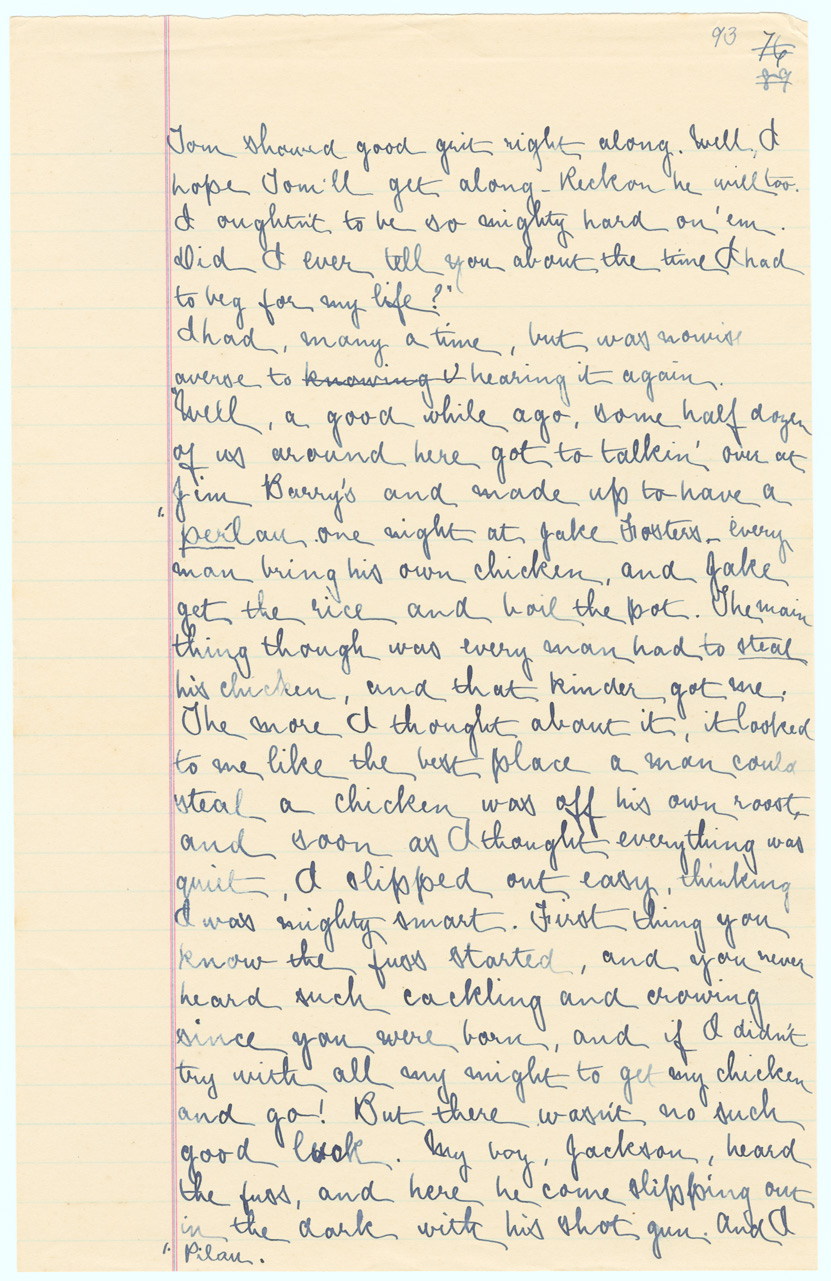 93 76
89
Tom showed good grit right along. Well, I
hope Tom'll get along - Reckon he will too.
I oughtn't to be so mighty hard on 'em.
Did I ever tell you about the time I had
to beg for my life?"
I had, many a time, but was nowise
averse to knowing hearing it again.
"Well, a good while ago, some half dozen
of us around here got to talkin' over at
Jim Barry's and made up to have a
perlau one night at Jake Fosters - every
man bring his own chicken, and Jake
get the rice and boil the pot. The main
thing though was every man had to steal
his chicken, and that kinder got me.
The more I thought about it, it looked
to me like the best place a man could
steal a chicken was off his own roost,
and soon as I thought everything was
quiet, I slipped out easy, thinking
I was mighty smart. First thing you
know the fuss started, and you never
heard such cackling and crowing
since you were born, and if I didn't
try with all my might to get my chicken
and go! But there wasn't no such
good luck. My boy, Jackson, heard
the fuss, and here he come slipping out
in the dark with his shot gun. And I
Pilau.